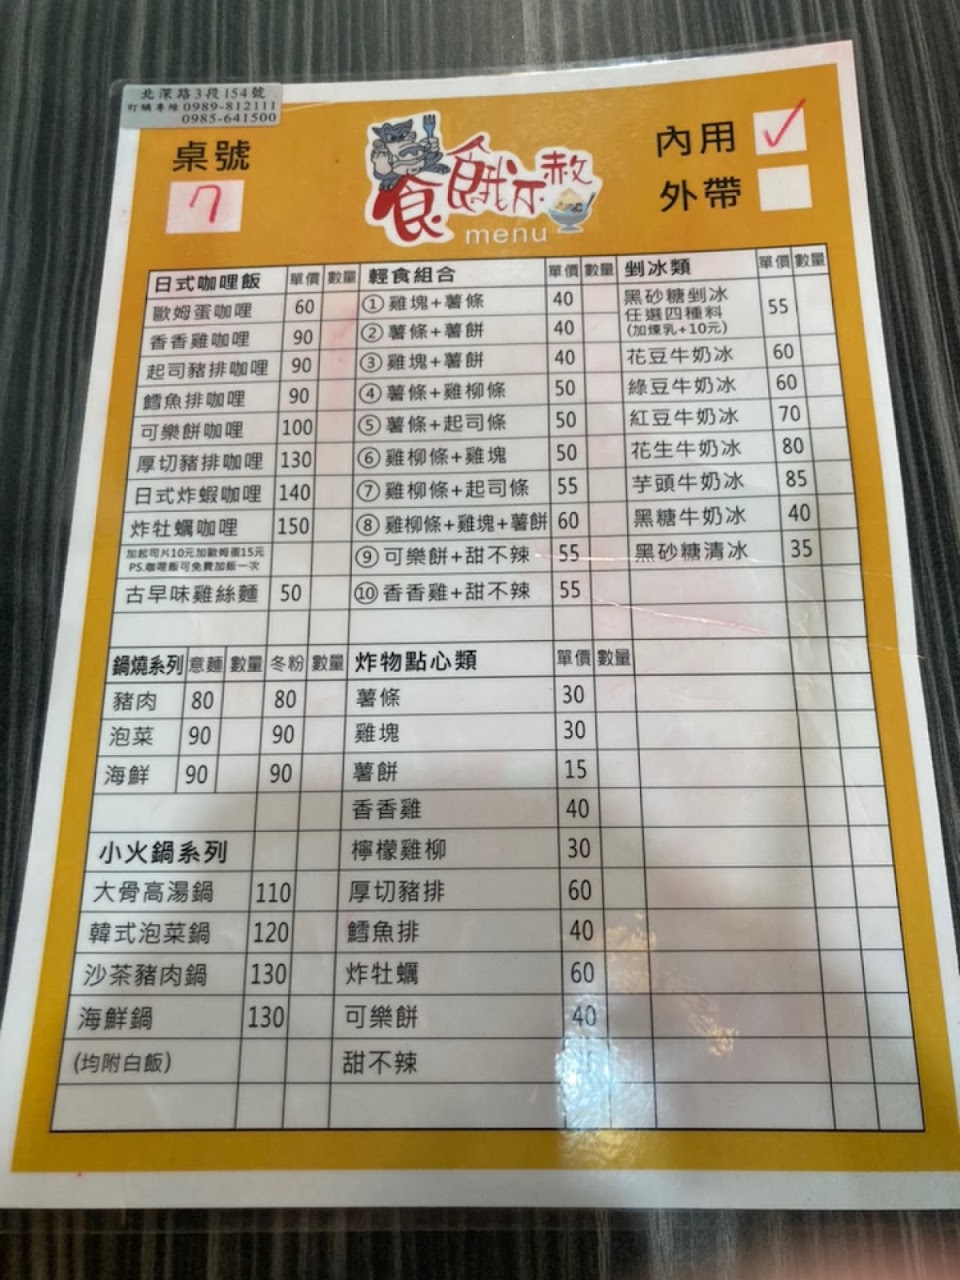 北深路3段154號
訂購專線0989-812111
0985-641500
桌號
7
食餓不赦
menu
內用 ✓
外帶
日式咖哩飯 單價 數量
歐姆蛋咖哩 60
香香雞咖哩 90
起司豬排咖哩 90
鱈魚排咖哩 90
可樂餅咖哩 100
厚切豬排咖哩 130
日式炸蝦咖哩 140
炸牡蠣咖哩 150
加起司片10元加歐姆蛋15元
PS.咖哩飯可免費加飯一次
古早味雞絲麵 50
輕食組合 單價 數量
① 雞塊+薯條 40
② 薯條+薯餅 40
③ 雞塊+薯餅 40
④ 薯條+雞柳條 50
⑤ 薯條+起司條 50
⑥ 雞柳條+雞塊 50
⑦ 雞柳條+起司條 55
⑧ 雞柳條+雞塊+薯餅 60
⑨ 可樂餅+甜不辣 55
⑩ 香香雞+甜不辣 55
剉冰類 單價 數量
黑砂糖剉冰
任選四種料 55
(加煉乳+10元)
花豆牛奶冰 60
綠豆牛奶冰 60
紅豆牛奶冰 70
花生牛奶冰 80
芋頭牛奶冰 85
黑糖牛奶冰 40
黑砂糖清冰 35
鍋燒系列 意麵 數量 冬粉 數量
豬肉 80 80
泡菜 90 90
海鮮 90 90
小火鍋系列
大骨高湯鍋 110
韓式泡菜鍋 120
沙茶豬肉鍋 130
海鮮鍋 130
(均附白飯)
炸物點心類 單價 數量
薯條 30
雞塊 30
薯餅 15
香香雞 40
檸檬雞柳 30
厚切豬排 60
鱈魚排 40
炸牡蠣 60
可樂餅 40
甜不辣